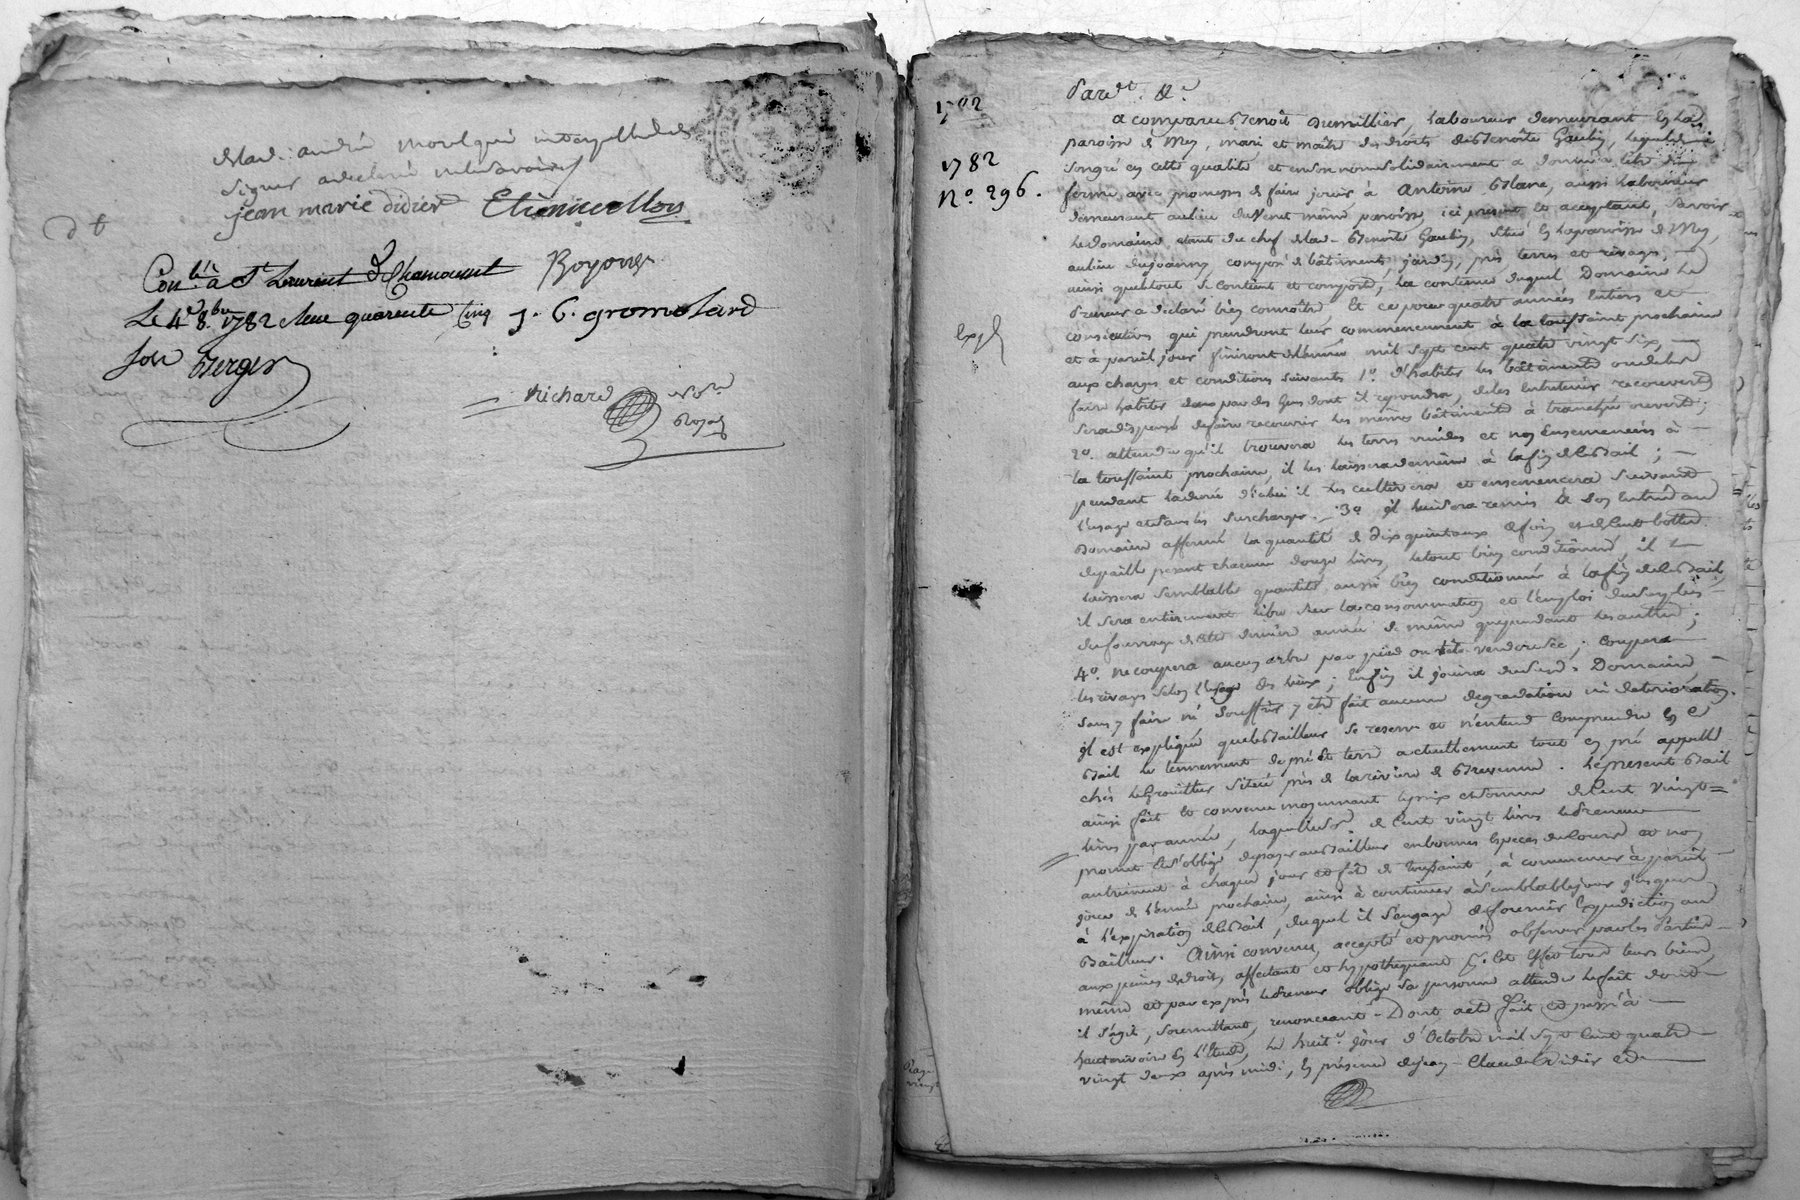 jean marie didier
Con.lé à St Laurent de Chamousset
Le 4e 8bre 1782 quarente Cinq j. C. gromolard
Sols Berger
Richard
Royal
1782
1782
N.o 296.
Expé
Pardt. &c.
a comparu Benoît Dumillier, Laboureur demeurant en la
paroisse de Mey, mari et maître des droits de Benoîte Gaulin, lequel de
son gré en cette qualité et en son nom solidairement a donné à titre de
ferme, avec promesse de faire jouir à Antoine Blanc, aussi Laboureur
demeurant au lieu même paroisse, ici présent et acceptant, savoir
Le domaine étant du chef de lad. Benoîte Gaulin, situé en la paroisse de Mey,
au lieu composé de bâtiments, jardin, prés, terres et rivages,
ainsi que le tout se contient et comporte, la contenue duquel Domaine le
Preneur a déclaré bien connoître, Et ce pour quatre années entières et
consécutives qui prendront leur commencement à la toussaint prochaine
et à pareil jour finiront de l'année mil sept cent quatre vingt six,
aux charges et conditions suivantes 1.o d'habiter les bâtiments ou de les
faire habiter par des gens dont il repondra, de les entretenir recouverts
sera dispensé de faire recouvrir les mêmes bâtiments à tranchée ouverte;
2.o attendu qu'il trouvera les terres vuides et non Ensemencées à
la toussaint prochaine, il les laissera de même à la fin de ce Bail;
pendant la durée d'icelui il les cultivera et ensemencera suivant
l'usage et sans les surcharger. 3.o il lui sera remis à son entrée au
Domaine affermé la quantité de dix quintaux de foin et de Cent bottes
de paille pesant chacune douze livres, le tout bien conditionné, il
laissera semblable quantité aussi bien conditionnée à la fin de ce Bail,
il sera entièrement libre sur la consommation et l'emploi du surplus
du fourrage de cette dernière année de même que pendant les autres;
4.o ne coupera aucun arbre par pied ou tête verd ou sec; Coupera
les rivages selon l'usage des lieux; Enfin il jouira dudit Domaine,
sans y faire ni souffrir y être fait aucune degradation ni deterioration.
il est expliqué que le Bailleur se reserve et n'entend comprendre en ce
Bail le tennement de pré et terre actuellement tout en pré appellé
chés situé près de la rivière de Brevenne. Le présent Bail
ainsi fait et convenu moyennant le prix et somme de Cent Vingt
livres par année, laquelle somme de Cent vingt livres le Preneur
promet et s'oblige de payer au Bailleur en bonnes Especes de Cours et non
autrement à chaque jour et fête de toussaint, à commencer à pareil
jour de l'année prochaine, ainsi à continuer à semblable jour jusques
à l'expiration de ce Bail, duquel il s'engage de fournir Expedition au
Bailleur. Ainsi convenu, accepté et promis observer par les Parties
aux peines de droit, affectant et hypothéquant pr. cet effet tous leurs biens,
même et par exprès le Preneur oblige sa personne attendu le fait dont
il s'agit, soumettant, renonceant. Dont acte fait et passé à
hauterivoire En l'étude, Le huit.e jour d'Octobre mil sept Cent quatre
vingt deux après midi, En présence de Jean-Claude Didier et